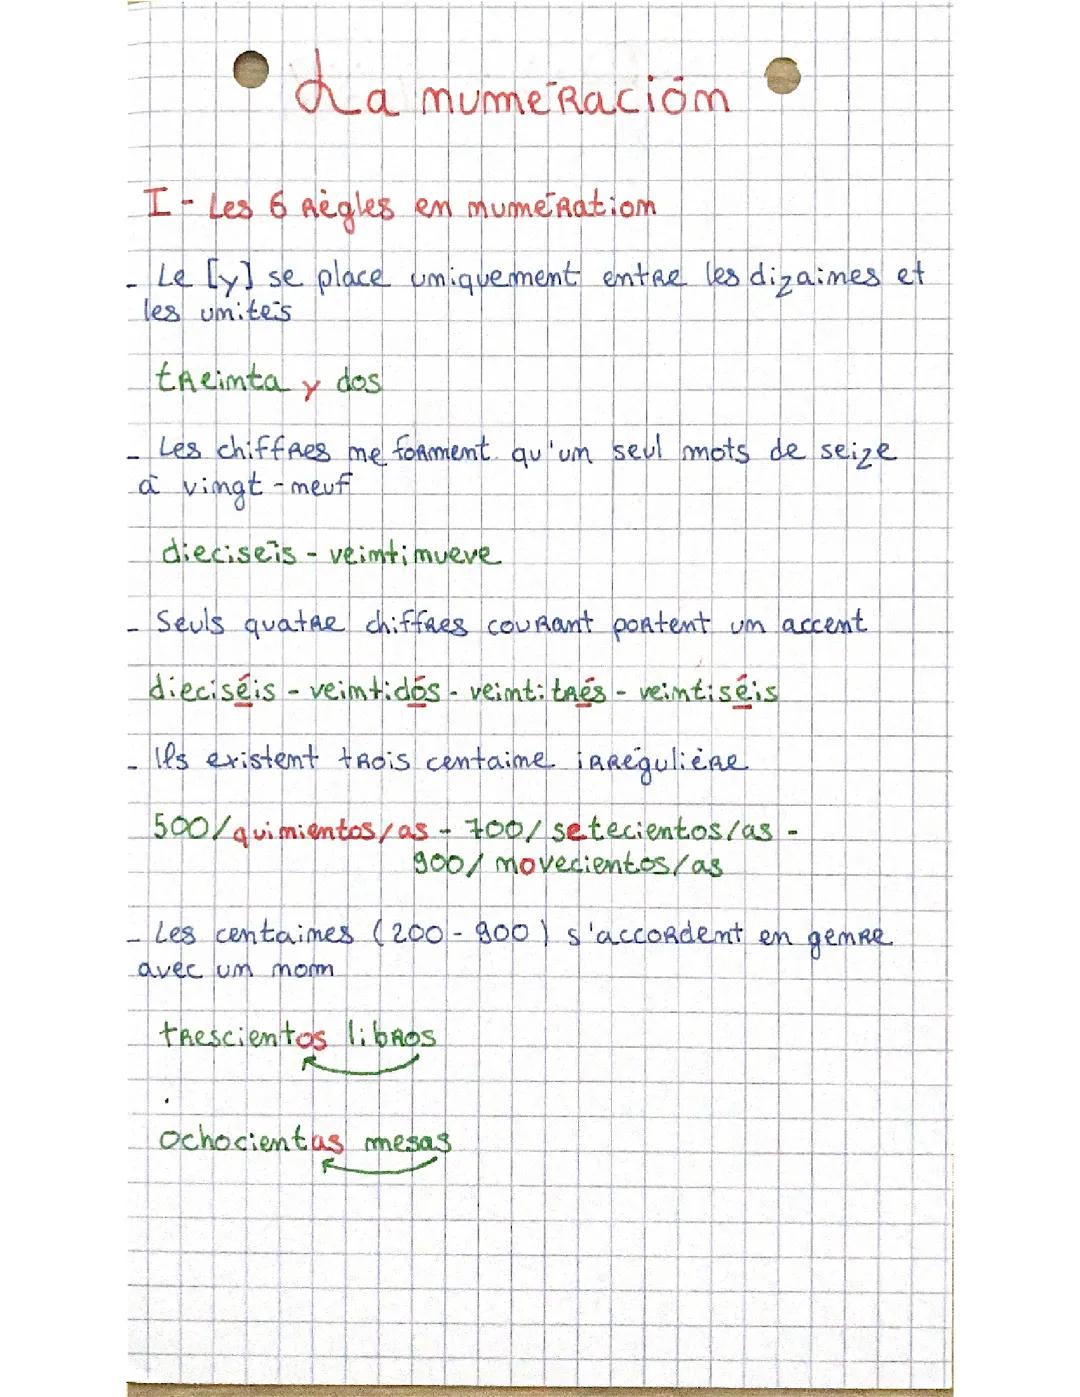 La numeración
I - Les 6 règles en numération
- Le [y] se place uniquement entre les dizaines et
les unités
treinta y dos
- Les chiffres ne forment qu'un seul mots de seize
à vingt-neuf
dieciséis - veintinueve
- Seuls quatre chiffres courant portent un accent
dieciséis - veintidós - veintitrés - veintiséis
- Ils existent trois centaine irrégulière
500/quinientos/as - 700/setecientos/as -
900/novecientos/as
- Les centaines (200-900) s'accordent en genre
avec un nom
trescientos libros
ochocientas mesas